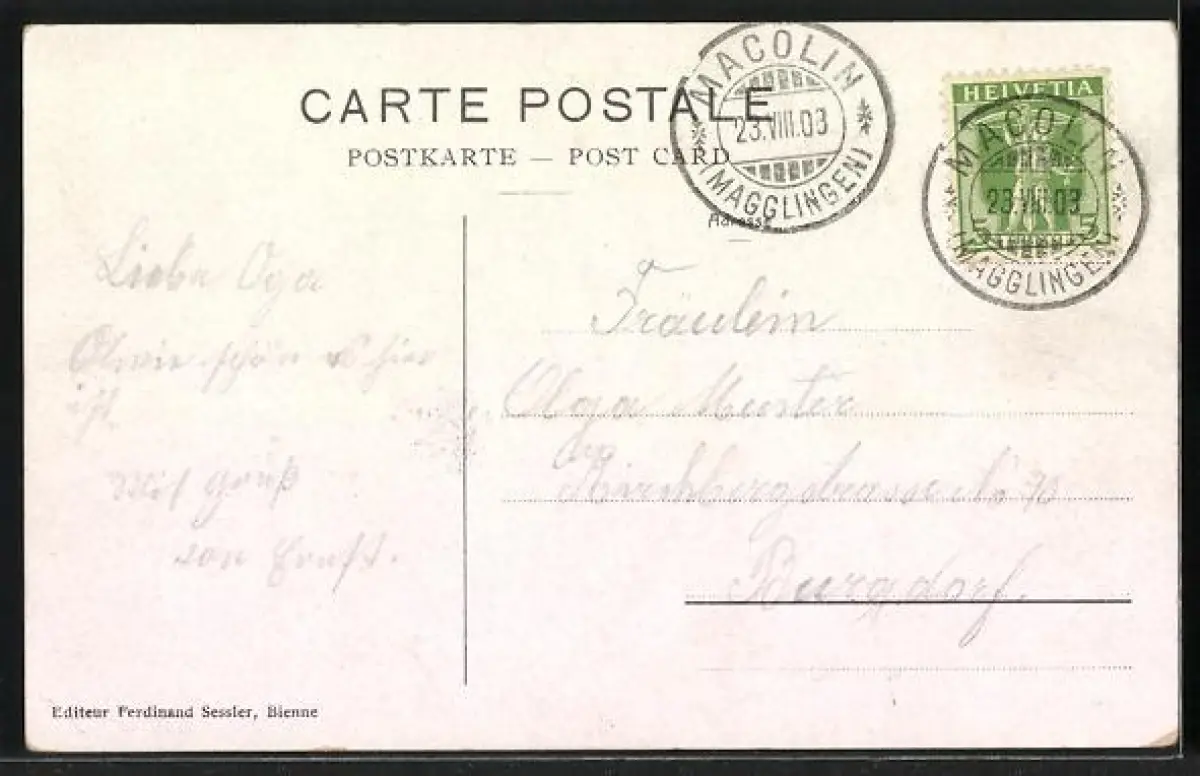 CARTE POSTALE
POSTKARTE — POST CARD
MACOLIN
23.VIII.03
(MAGGLINGEN)
HELVETIA
5 5
MACOLIN
23.VIII.03
(MAGGLINGEN)
Adresse
Liebe Oga
schön es hier
ist.
Mit Gruß
von Ernst.
Fräulein
Olga Muster
Kirchbergstrasse No 70
Burgdorf.
Editeur Ferdinand Sessler, Bienne